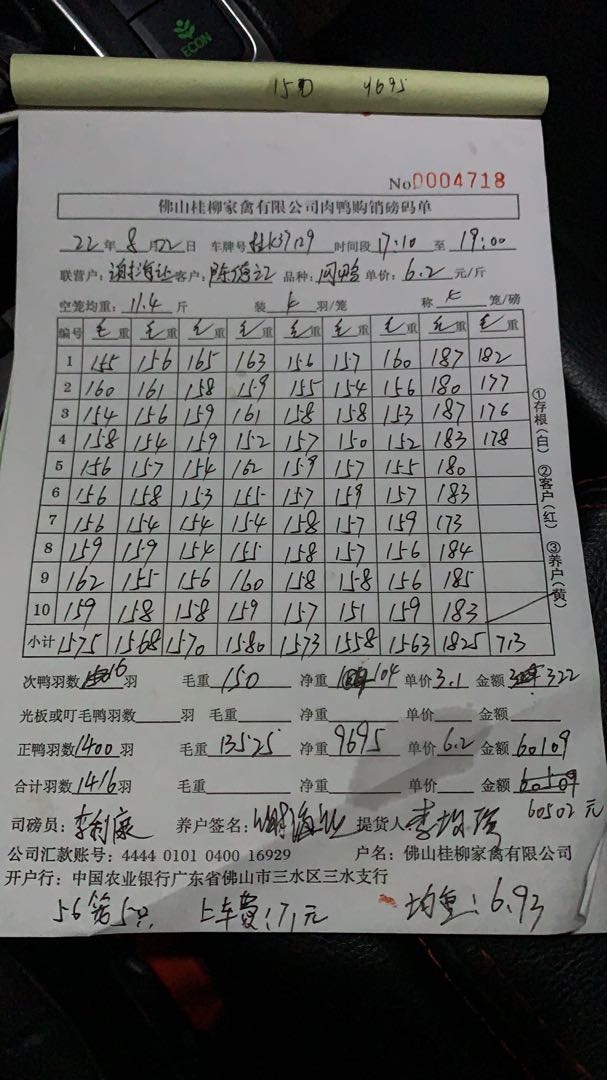 ECON
9695
No 0004718
佛山桂柳家禽有限公司肉鸭购销磅码单
22年8月22日 车牌号 桂K37129 时间段 17:10 至 19:00
联营户: 客户: 陈 品种: 单价: 6.2 元/斤
空笼均重: 11.4 斤 装 羽/笼 称 笼/磅
编号 毛重 毛重 毛重 毛重 毛重 毛重 毛重 毛重 毛重
1 155 156 165 163 156 157 160 187 182
2 160 161 158 159 155 154 156 180 177
3 154 156 159 161 158 158 153 187 176
4 158 154 159 152 157 150 152 183 178
5 156 157 154 162 159 157 155 180
6 156 158 153 155 157 159 157 183
7 156 154 154 154 158 157 159 173
8 159 159 154 155 158 157 156 184
9 162 155 156 160 158 158 156 185
10 159 158 158 159 157 151 159 183
小计 1575 1568 1570 1580 1573 1558 1563 1825 713
①存根(白) ②客户(红) ③养户(黄)
次鸭羽数 16 羽 毛重 150 净重 104 单价 3.1 金额 322
光板或叮毛鸭羽数 羽 毛重 净重 单价 金额
正鸭羽数 1400 羽 毛重 13525 净重 9695 单价 6.2 金额 60109
合计羽数 1416 羽 毛重 净重 单价 金额
60502元
司磅员: 李 养户签名: 提货人 李
公司汇款账号: 4444 0101 0400 16929 户名: 佛山桂柳家禽有限公司
开户行: 中国农业银行广东省佛山市三水区三水支行
56笼5只 上车费:71元 均重:6.93